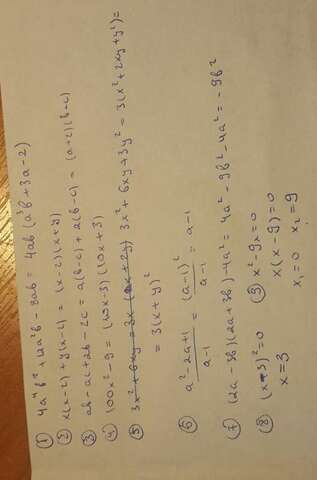 ① 4a⁴b² + 12a²b - 8ab = 4ab(a³b + 3a - 2)
② x(x-c) + y(x-c) = (x-c)(x+y)
③ ab - ac + 2b - 2c = a(b-c) + 2(b-c) = (a+2)(b-c)
④ 100x² - 9 = (10x-3)(10x+3)
⑤ 3x² + 6xy = 3x(x+2y) 3x² + 6xy + 3y² = 3(x² + 2xy + y²) =
= 3(x+y)²
⑥ (a² - 2a + 1)/(a-1) = (a-1)²/(a-1) = a-1
⑦ (2a - 3b)(2a + 3b) - 4a² = 4a² - 9b² - 4a² = -9b²
⑧ (x-3)² = 0
x = 3
⑨ x² - 9x = 0
x(x - 9) = 0
x₁ = 0 x₂ = 9